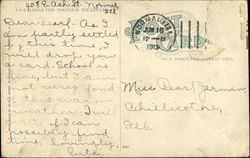 608 E. Ash St. Normal
Ill
THIS SPACE FOR WRITING MESSAGES
Dear Pearl: As I
am partly settled
by this time, I
will drop you
a card. School is
fine, but I am
not very fond
of that
will
if I can
possibly find
time. Lovingly,
NORMAL, ILL.
JUN 16
12 M
1913
THIS SPACE FOR ADDRESS ONLY
Miss Pearl German
Chillicothe,
Ill.